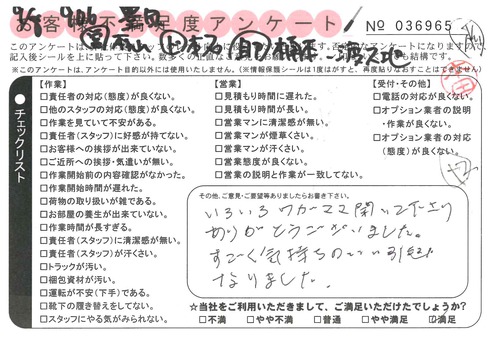 お客様不満足度アンケート
No 036965
【作業】
□責任者の対応(態度)が良くない。
□他のスタッフの対応(態度)が良くない。
□作業を見ていて不安がある。
□責任者(スタッフ)に好感が持てない。
□お客様への挨拶が出来ていない。
□ご近所への挨拶・気遣いが無い。
□作業開始前の内容確認がなかった。
□作業開始時間が遅れた。
□荷物の取り扱いが雑である。
□お部屋の養生が出来ていない。
□作業時間が長すぎる。
□責任者(スタッフ)に清潔感が無い。
□責任者(スタッフ)が汗くさい。
□トラックが汚い。
□梱包資材が汚い。
□運転が不安(下手)である。
□靴下の履き替えをしてない。
□スタッフにやる気がみられない。
【営業】
□見積もり時間に遅れた。
□見積もり時間が長い。
□営業マンに清潔感が無い。
□営業マンが煙草くさい。
□営業マンが汗くさい。
□営業態度が良くない。
□営業の説明と作業が一致してない。
【受付・その他】
□電話の対応が良くない。
□オプション業者の説明
・作業が良くない。
□オプション業者の対応
(態度)が良くない。
チェックリスト
その他、ご意見・ご要望等ありましたらお書き下さい。
いろいろワガママ聞いて下さり
ありがとうございました。
すごく気持ちのいい引越に
なりました。
☆当社をご利用いただきまして、ご満足いただけたでしょうか?
□不満 □やや不満 □普通 □やや満足 ☑満足